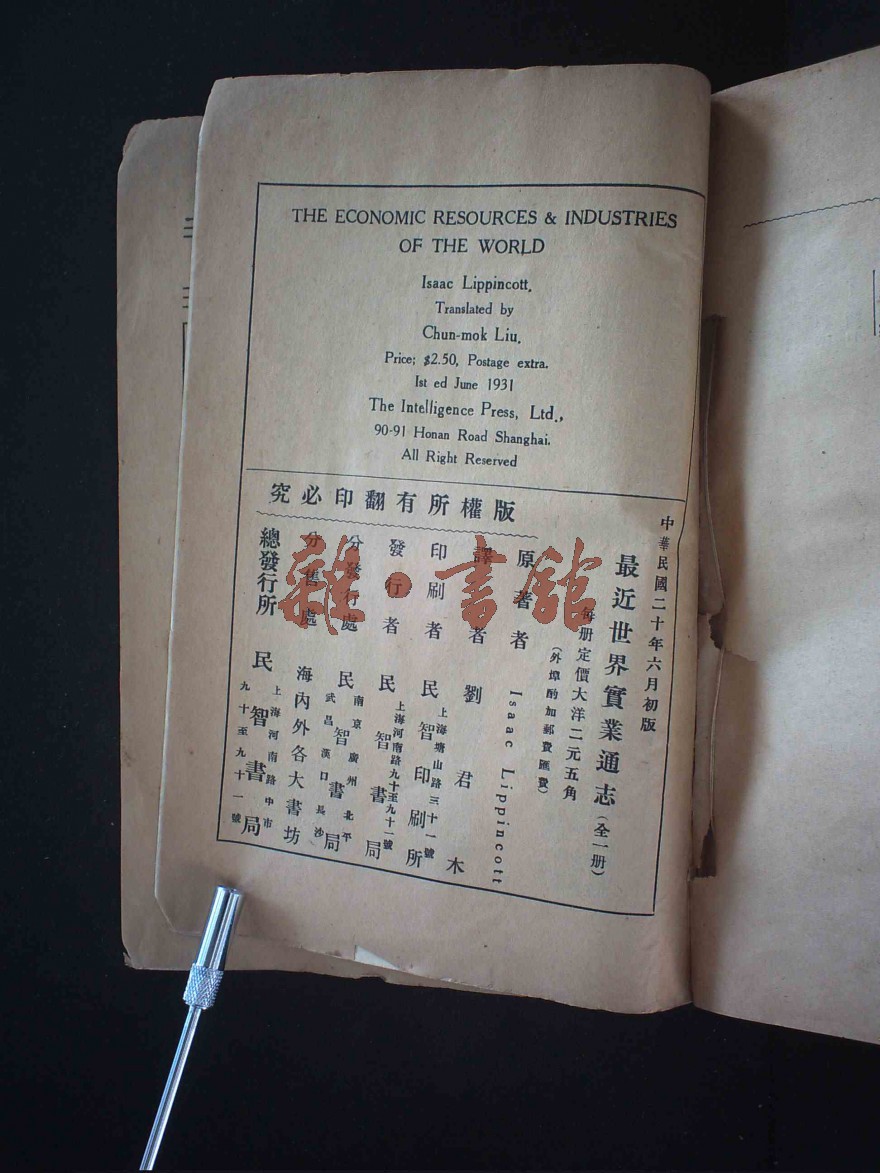 THE ECONOMIC RESOURCES & INDUSTRIES
OF THE WORLD
Isaac Lippincott,
Translated by
Chun-mok Liu,
Price; $2.50, Postage extra.
1st ed June 1931
The Intelligence Press, Ltd.,
90-91 Honan Road Shanghai.
All Right Reserved
究必印翻有所權版
中華民國二十年六月初版
最近世界實業通志(全一册)
每册定價大洋二元五角
(外埠酌加郵費匯費)
原著者 Isaac Lippincott
譯者 劉君木
印刷者 民智印刷所
上海塘山路三十一號
發行者 民智書局
上海河南路九十至九十一號
分發行處 民智書局
南京廣州北平
武昌漢口長沙
分售處 海內外各大書坊
總發行所 民智書局
上海河南路中市
九十至九十一號
雜·書館